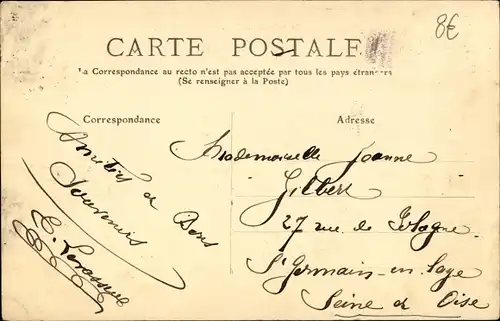 8€
CARTE POSTALE
La Correspondance au recto n'est pas acceptée par tous les pays étrangers
(Se renseigner à la Poste)
Correspondance
Adresse
Amitiés et Bons
Souvenirs
Mademoiselle Jeanne
Gilbert
27 rue de Pologne
St Germain-en-Laye
Seine et Oise